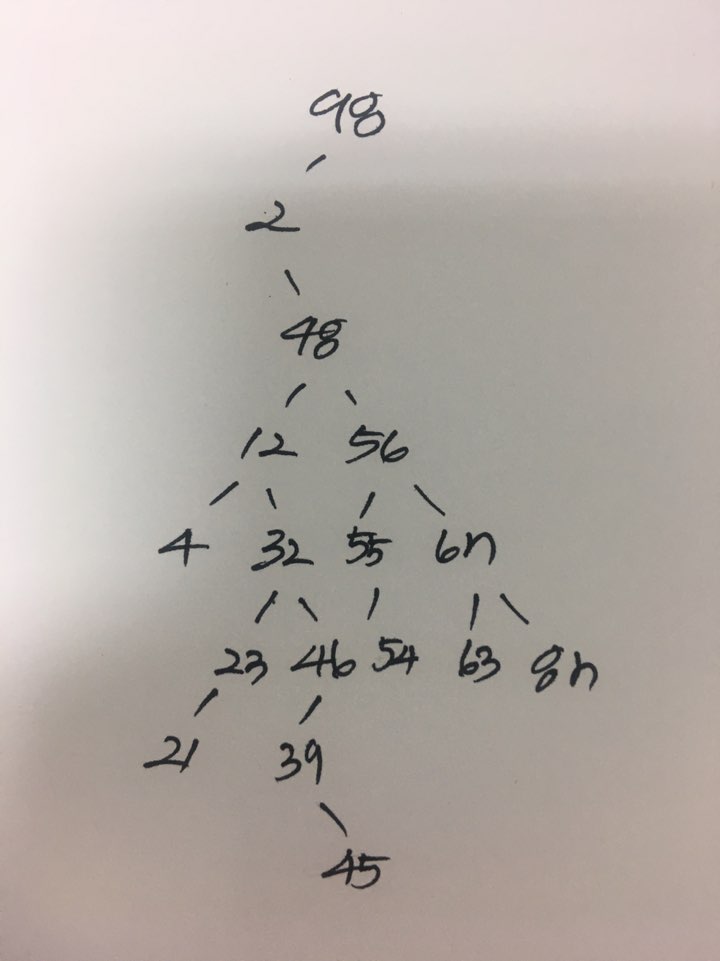 98
2
48
12 56
4 32 55 67
23 46 54 63 87
21 39
45